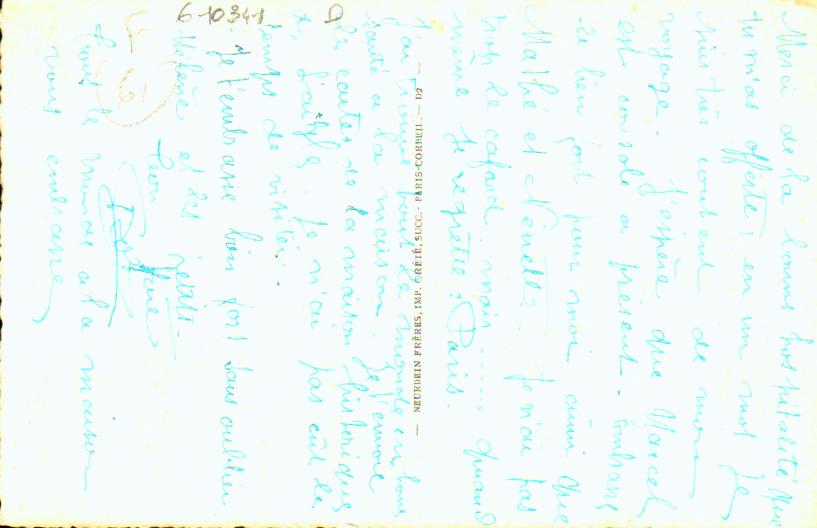 Merci de la bonne hospitalité que
tu m'as offerte, en un mot je
suis très content de mon
voyage. J'espère que Marcel
est consolé à présent. Embrasse
le bien fort pour moi ainsi que
Mathé et Je n'ai pas
trop le cafard, mais...... quand
même je regrette Paris.
J'ai trouvé tout le monde en bonne
santé à la maison. Je t'envoie
les cartes de la maison historique
de je n'ai pas eût le
temps de visiter.
Je t'embrasse bien fort sans oublier
Hélène et les
Ton
Tout le monde à la maison
vous embrasse
— NEURDEIN FRÈRES, IMP. CRÉTÉ, SUCC. - PARIS-CORBEIL. — D2 —
6-10341
D